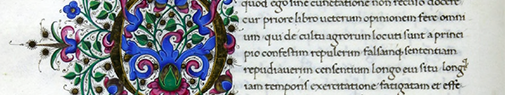 quod ego sine cunctatione non recuso docere
cur priore libro ueterum opinionem fere omni
um qui de cultu agrorum locuti sunt a princi
pio confestim repulerim falsamq sententiam
repudiauerim censentium longo eui situ longiq
iam temporis exercitatione fatigatam et effe